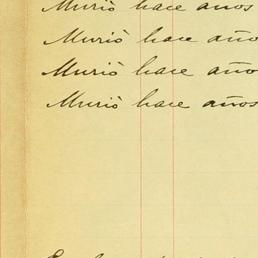 Murió hace años
Murió hace año
Murió hace año
Murió hace años